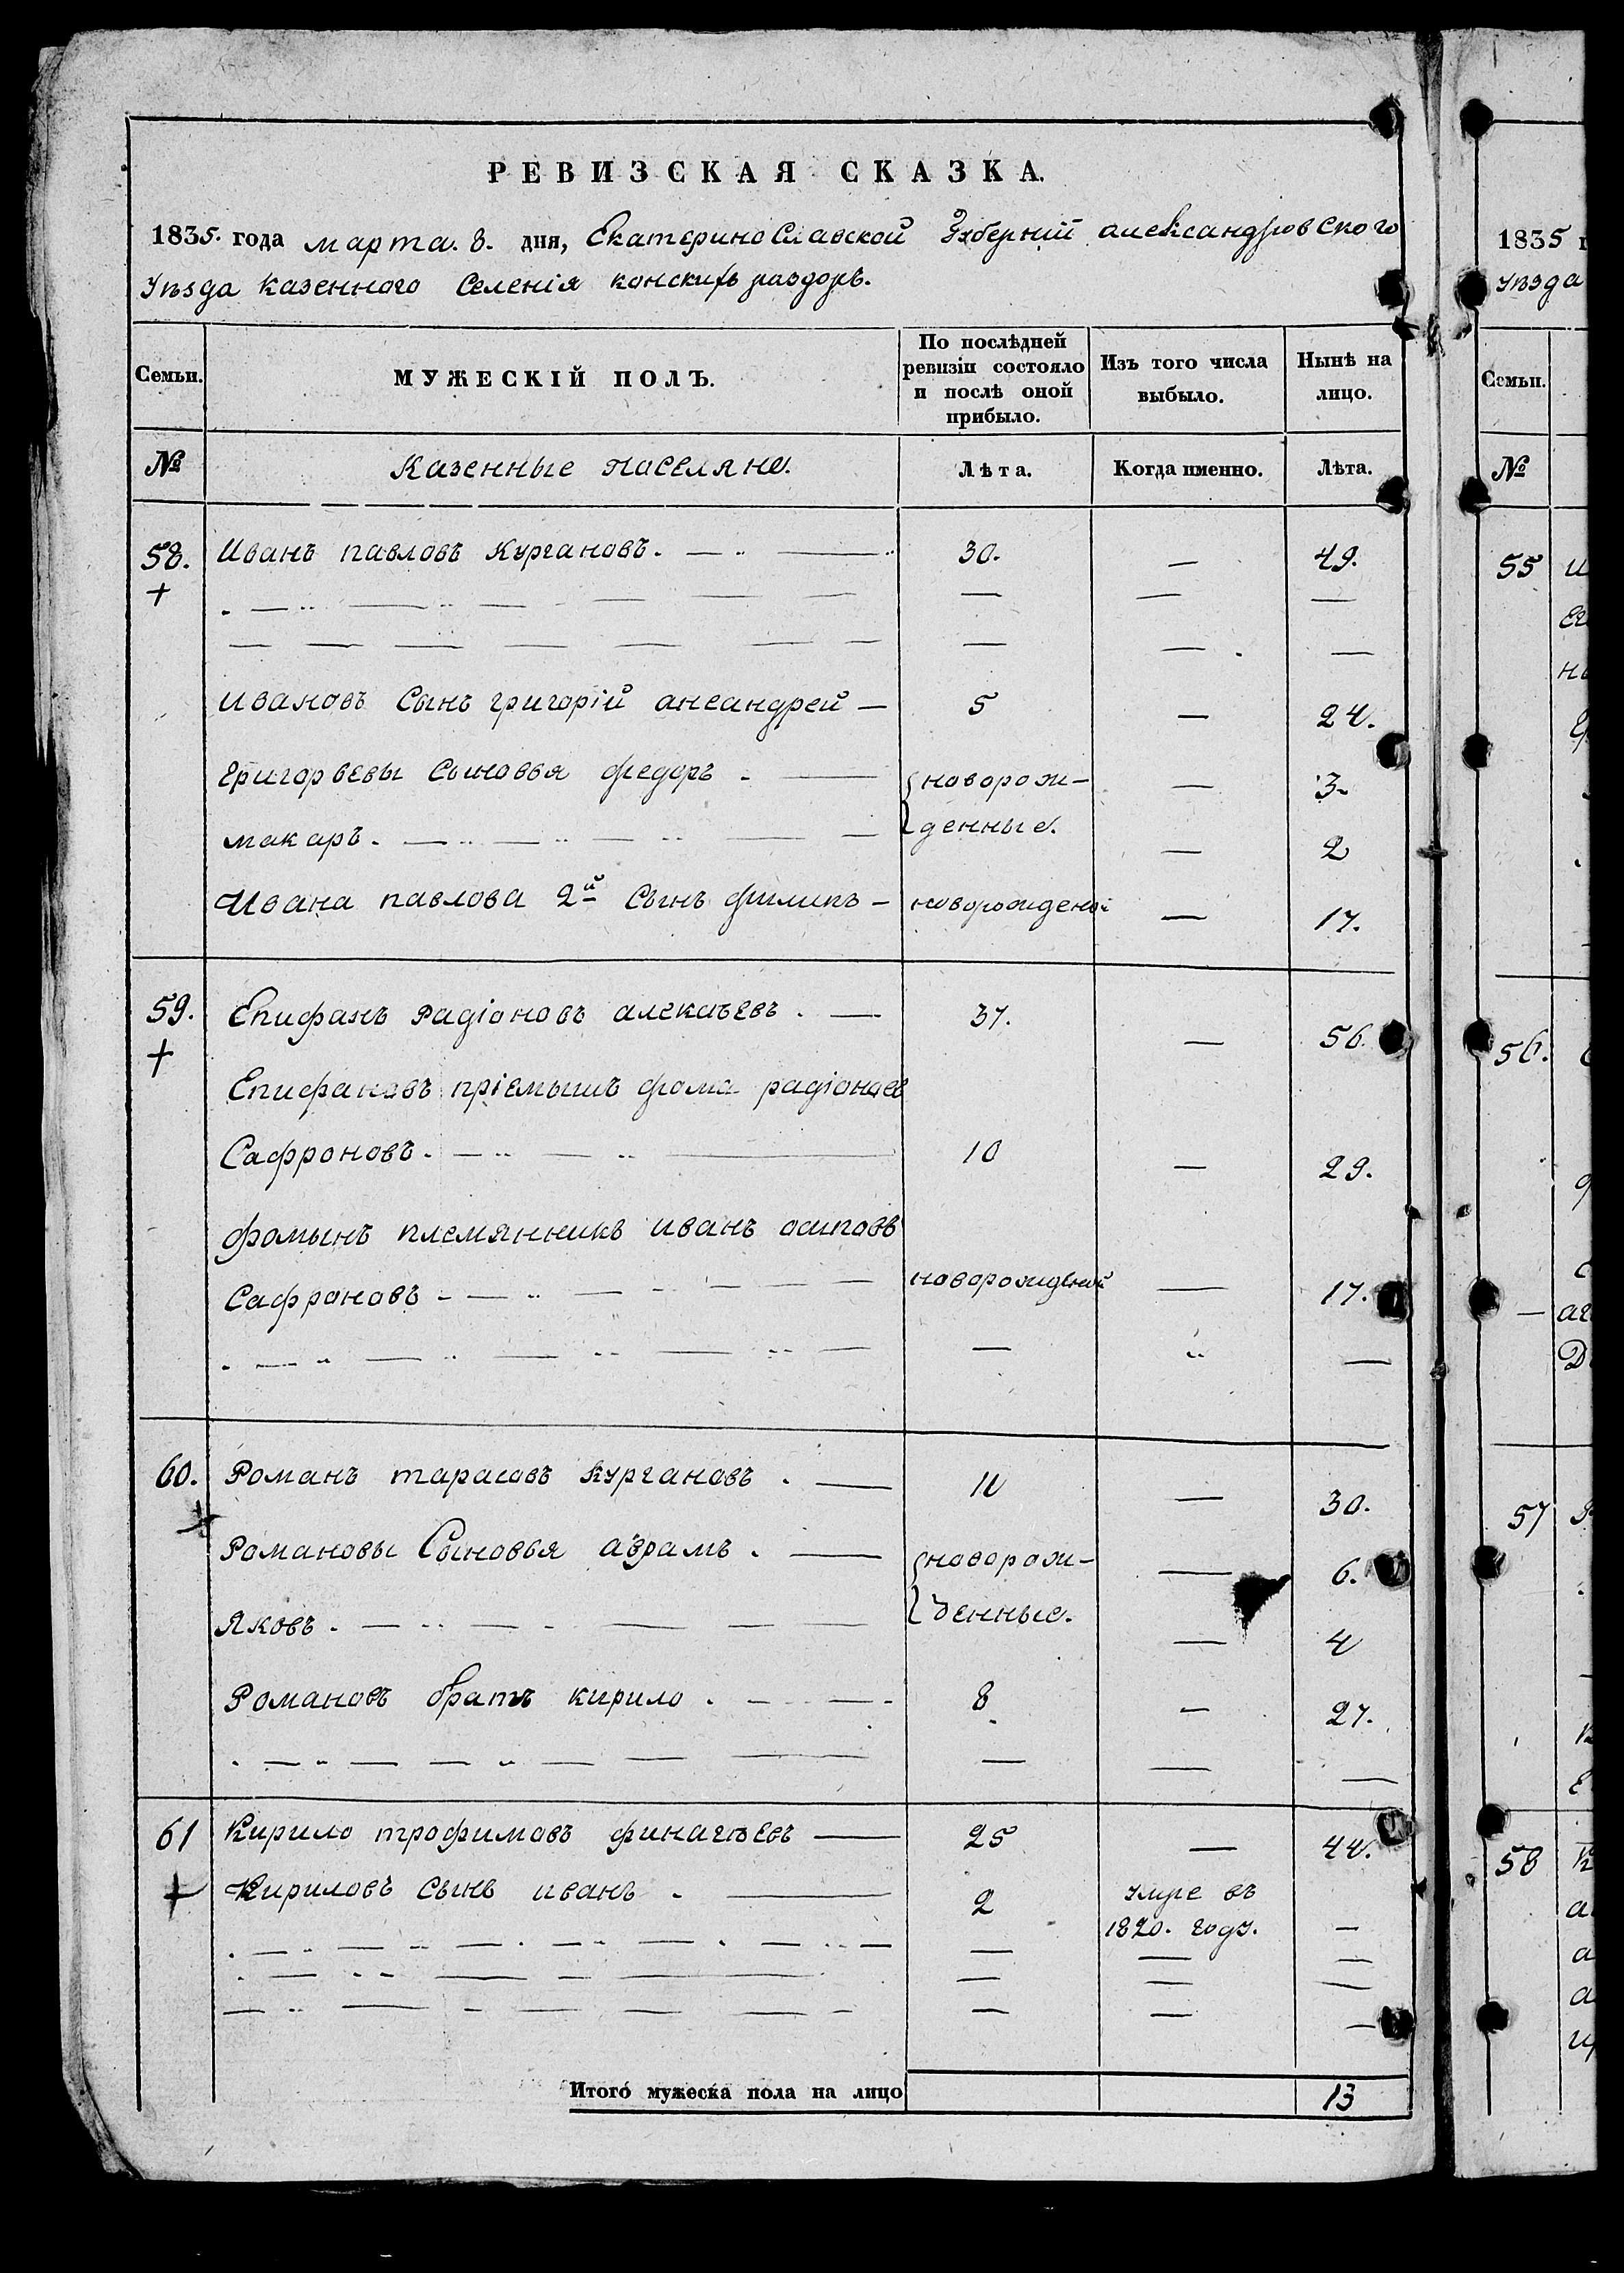 РЕВИЗСКАЯ СКАЗКА.
1835. года марта. 8. дня, Екатеринославской Губерній александровского
Уѣзда казенного Селенія конскихъ раздоръ.
Семьи. МУЖЕСКІЙ ПОЛЪ. По послѣдней ревизіи состояло и послѣ оной прибыло. Изъ того числа выбыло. Нынѣ на лицо.
№ Казенные поселяне. Лѣта. Когда именно. Лѣта.
58. Иванъ павловъ Кургановъ. 30. — 49.
+
Ивановъ Сынъ григорій 5 — 24.
Григорьевы Сыновья федоръ {новорож- — 3.
макаръ. денные. — 2
Ивана павлова 2й Сынъ филипъ — новорожденой — 17.
59. Епифанъ Радіоновъ алексѣевъ. — 37. — 56.
+
Епифановъ пріемышъ фома радіоновъ
Сафроновъ. 10 — 29.
фоминъ племянникъ иванъ осиповъ
Сафроновъ новорожденой — 17.
60. Романъ тарасовъ Кургановъ. — 11 — 30.
+
Романовы Сыновья аврамъ. — {новорож- — 6.
Яковъ. денные. — 4
Романовъ братъ кирило. 8 — 27.
61 Кирило трофимовъ финагѣевъ — 25 — 44.
+ Кириловъ Сынъ иванъ. 2 умре въ
1820. году. —
Итого мужеска пола на лицо 13
1835
уѣзда
Семьи.
№
55
56.
57
58